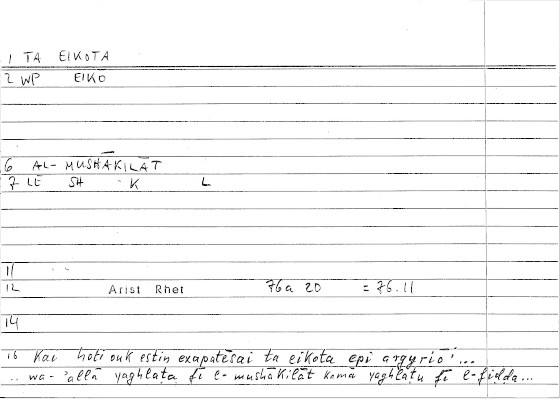 1 TA EIKOTA
2 WP EIKŌ
6 AL- MUSHĀKILĀT
7 LE SH K L
11
12 Arist Rhet 76a 20 = 76.11
14
16 Kai hoti ouk estin exapatēsai ta eikota epi argyriō ...
.. wa- 'allā yaghlaṭa fī l- mushākilāt kamā yaghlaṭu fī l-fiḍḍa...